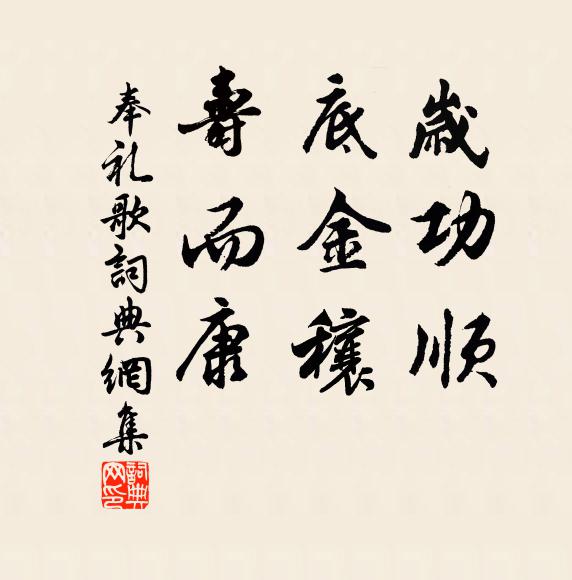 歲功順
底金穰
壽而康
奉礼歌詞典網集
詞典网印